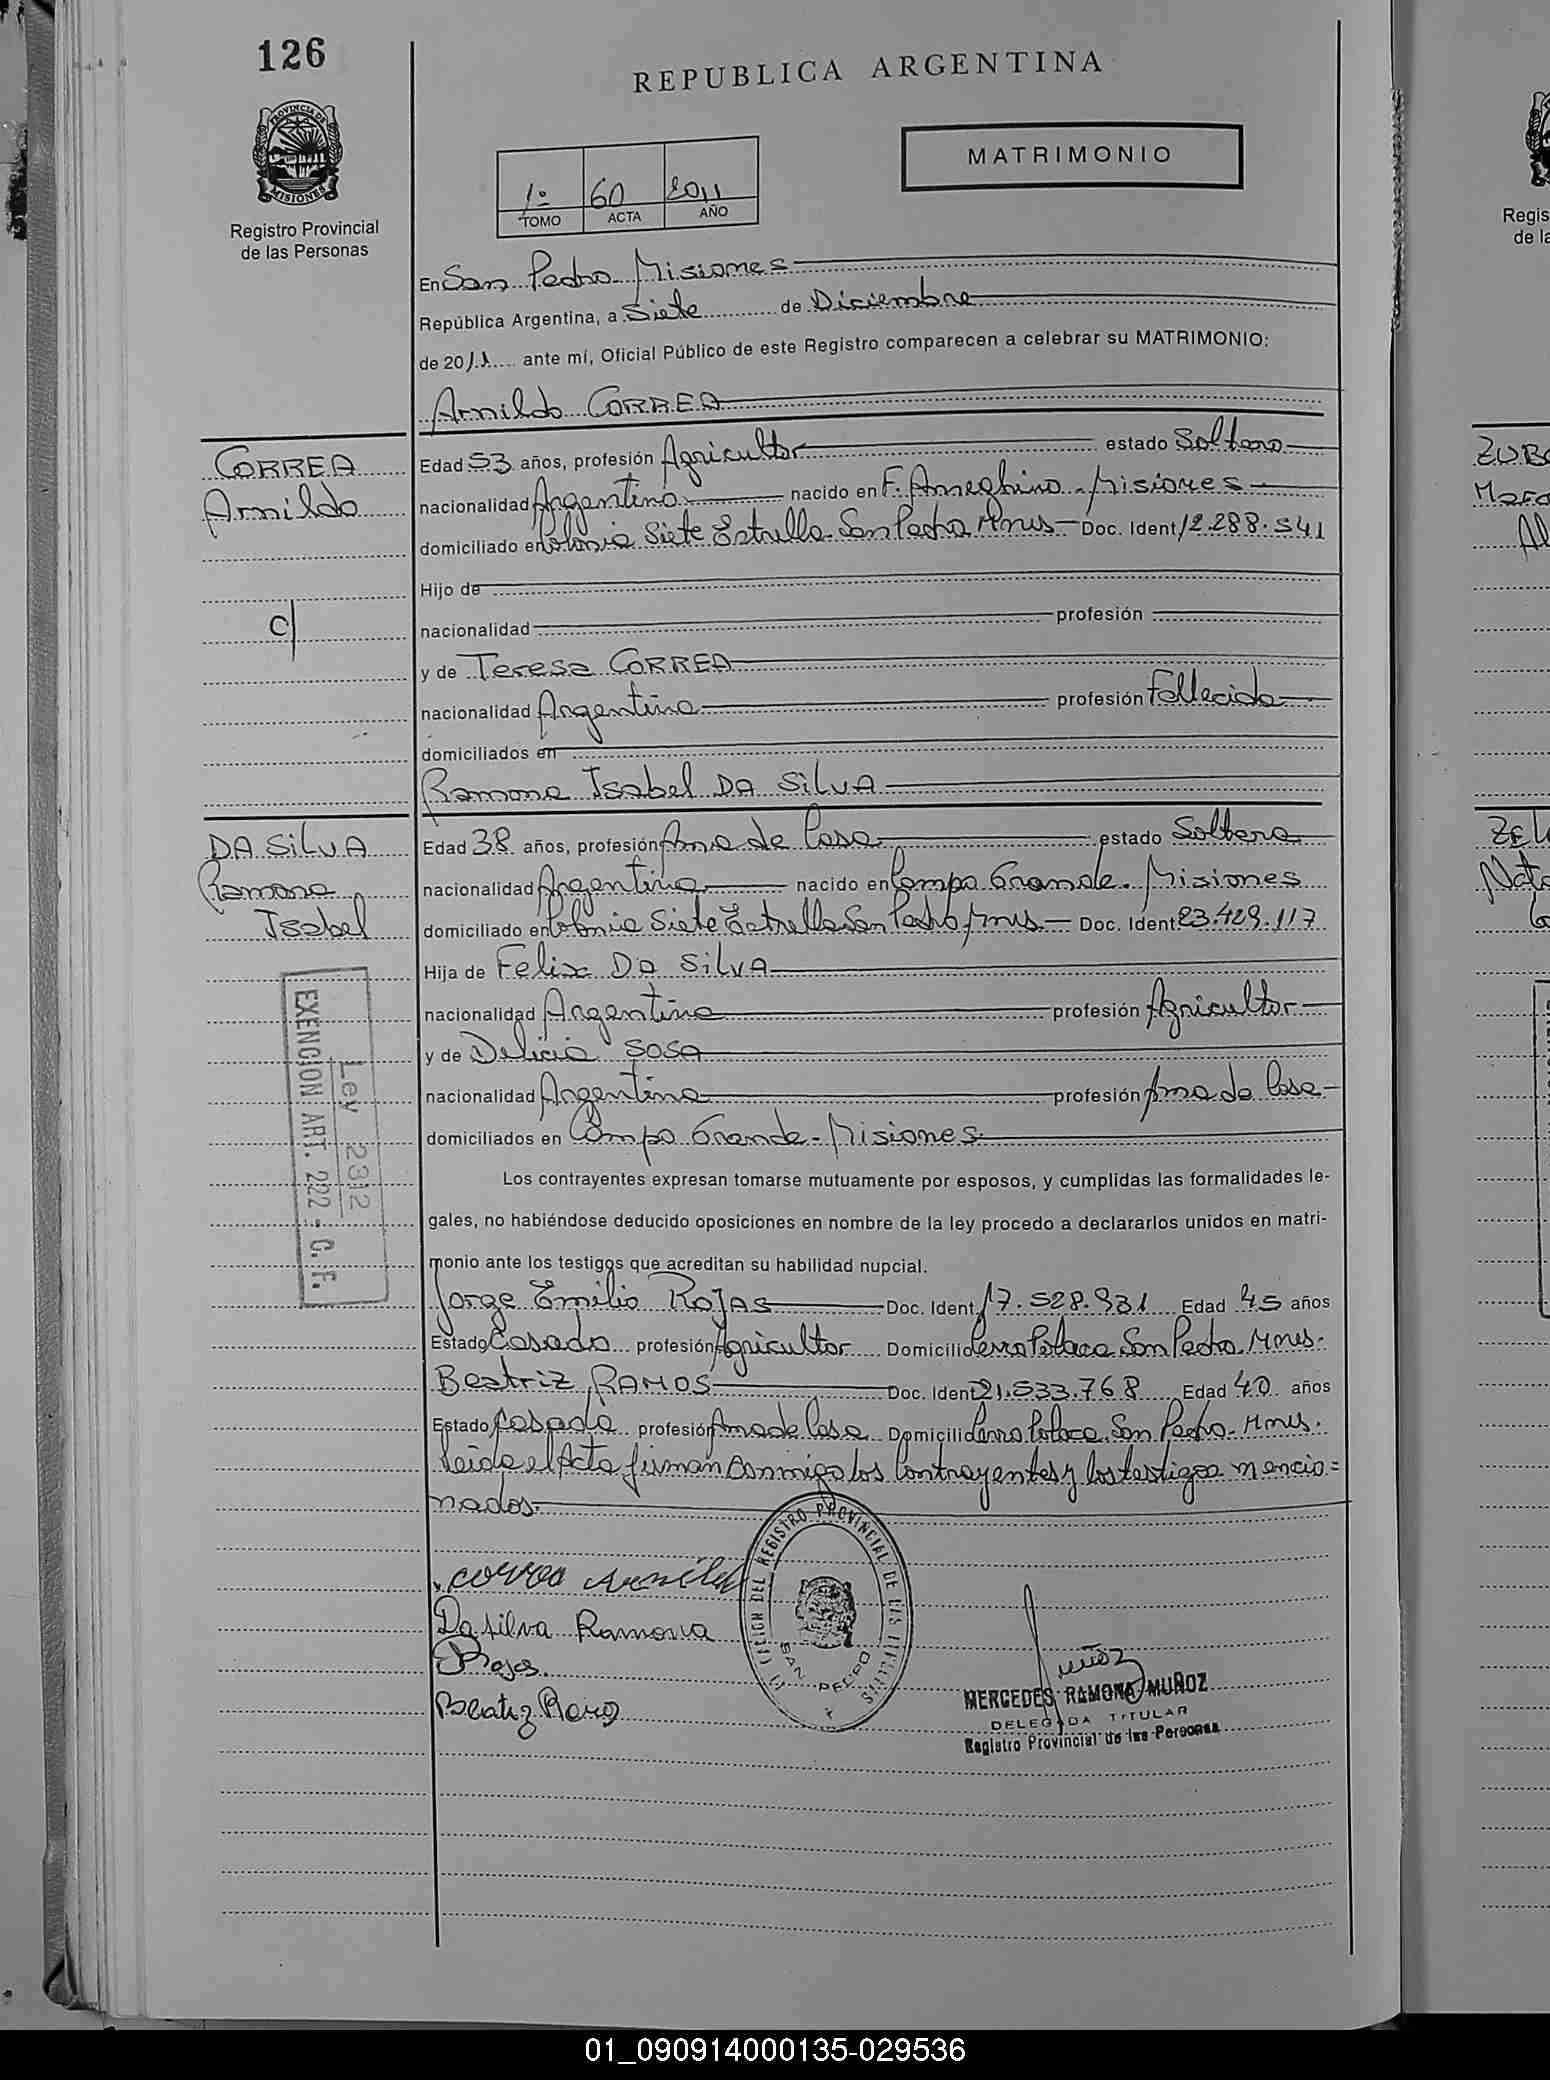 126
REPUBLICA ARGENTINA
PROVINCIA DE
MISIONES
Registro Provincial
de las Personas
1º 60 2011
TOMO ACTA AÑO
MATRIMONIO
En San Pedro Misiones
República Argentina, a Siete de Diciembre
de 2011 ante mí, Oficial Público de este Registro comparecen a celebrar su MATRIMONIO:
Arnildo CORREA
CORREA
Arnildo
c/
Edad 53 años, profesión Agricultor estado Soltero
nacionalidad Argentino nacido en F. Ameghino - Misiones
domiciliado en Colonia Siete Estrella - San Pedro Mnes Doc. Ident 12.288.541
Hijo de
nacionalidad profesión
y de Teresa CORREA
nacionalidad Argentina profesión Fallecida
domiciliados en
Ramona Isabel DA SILVA
DA SILVA
Ramona
Isabel
Edad 38 años, profesión Ama de Casa estado Soltera
nacionalidad Argentina nacido en Campo Grande - Misiones
domiciliado en Colonia Siete Estrella San Pedro Mnes Doc. Ident 23.429.117
Hija de Felix DA SILVA
nacionalidad Argentina profesión Agricultor
y de Delicia SOSA
nacionalidad Argentina profesión Ama de Casa
domiciliados en Campo Grande - Misiones
Ley 2312
EXENCION ART. 222 - C. F.
Los contrayentes expresan tomarse mutuamente por esposos, y cumplidas las formalidades le-
gales, no habiéndose deducido oposiciones en nombre de la ley procedo a declararlos unidos en matri-
monio ante los testigos que acreditan su habilidad nupcial.
Jorge Emilio ROJAS Doc. Ident 17.528.931 Edad 45 años
Estado Casado profesión Agricultor Domicilio Cerro Polaca San Pedro Mnes.
Beatriz RAMOS Doc. Ident 21.533.768 Edad 40 años
Estado Casada profesión Ama de Casa Domicilio Cerro Polaca San Pedro - Mnes.
Leída el Acta firman conmigo los Contrayentes y los testigos mencio=
nados.
Correa Arnildo
Da silva Ramona
Rojas
Beatriz Ramos
DEL REGISTRO PROVINCIAL DE LAS PERSONAS
SAN PEDRO
Muñoz
MERCEDES RAMONA MUÑOZ
DELEGADA TITULAR
Registro Provincial de las Personas
Regis
de la
ZUB
ZEL
01_090914000135-029536